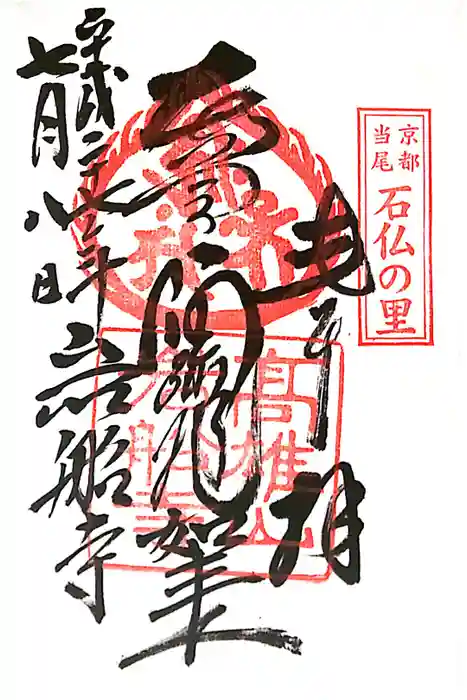 京都
当尾
石仏の里
奉拝
阿弥陀如来
高雄山
岩船寺
平成二十年
七月八日
岩船寺